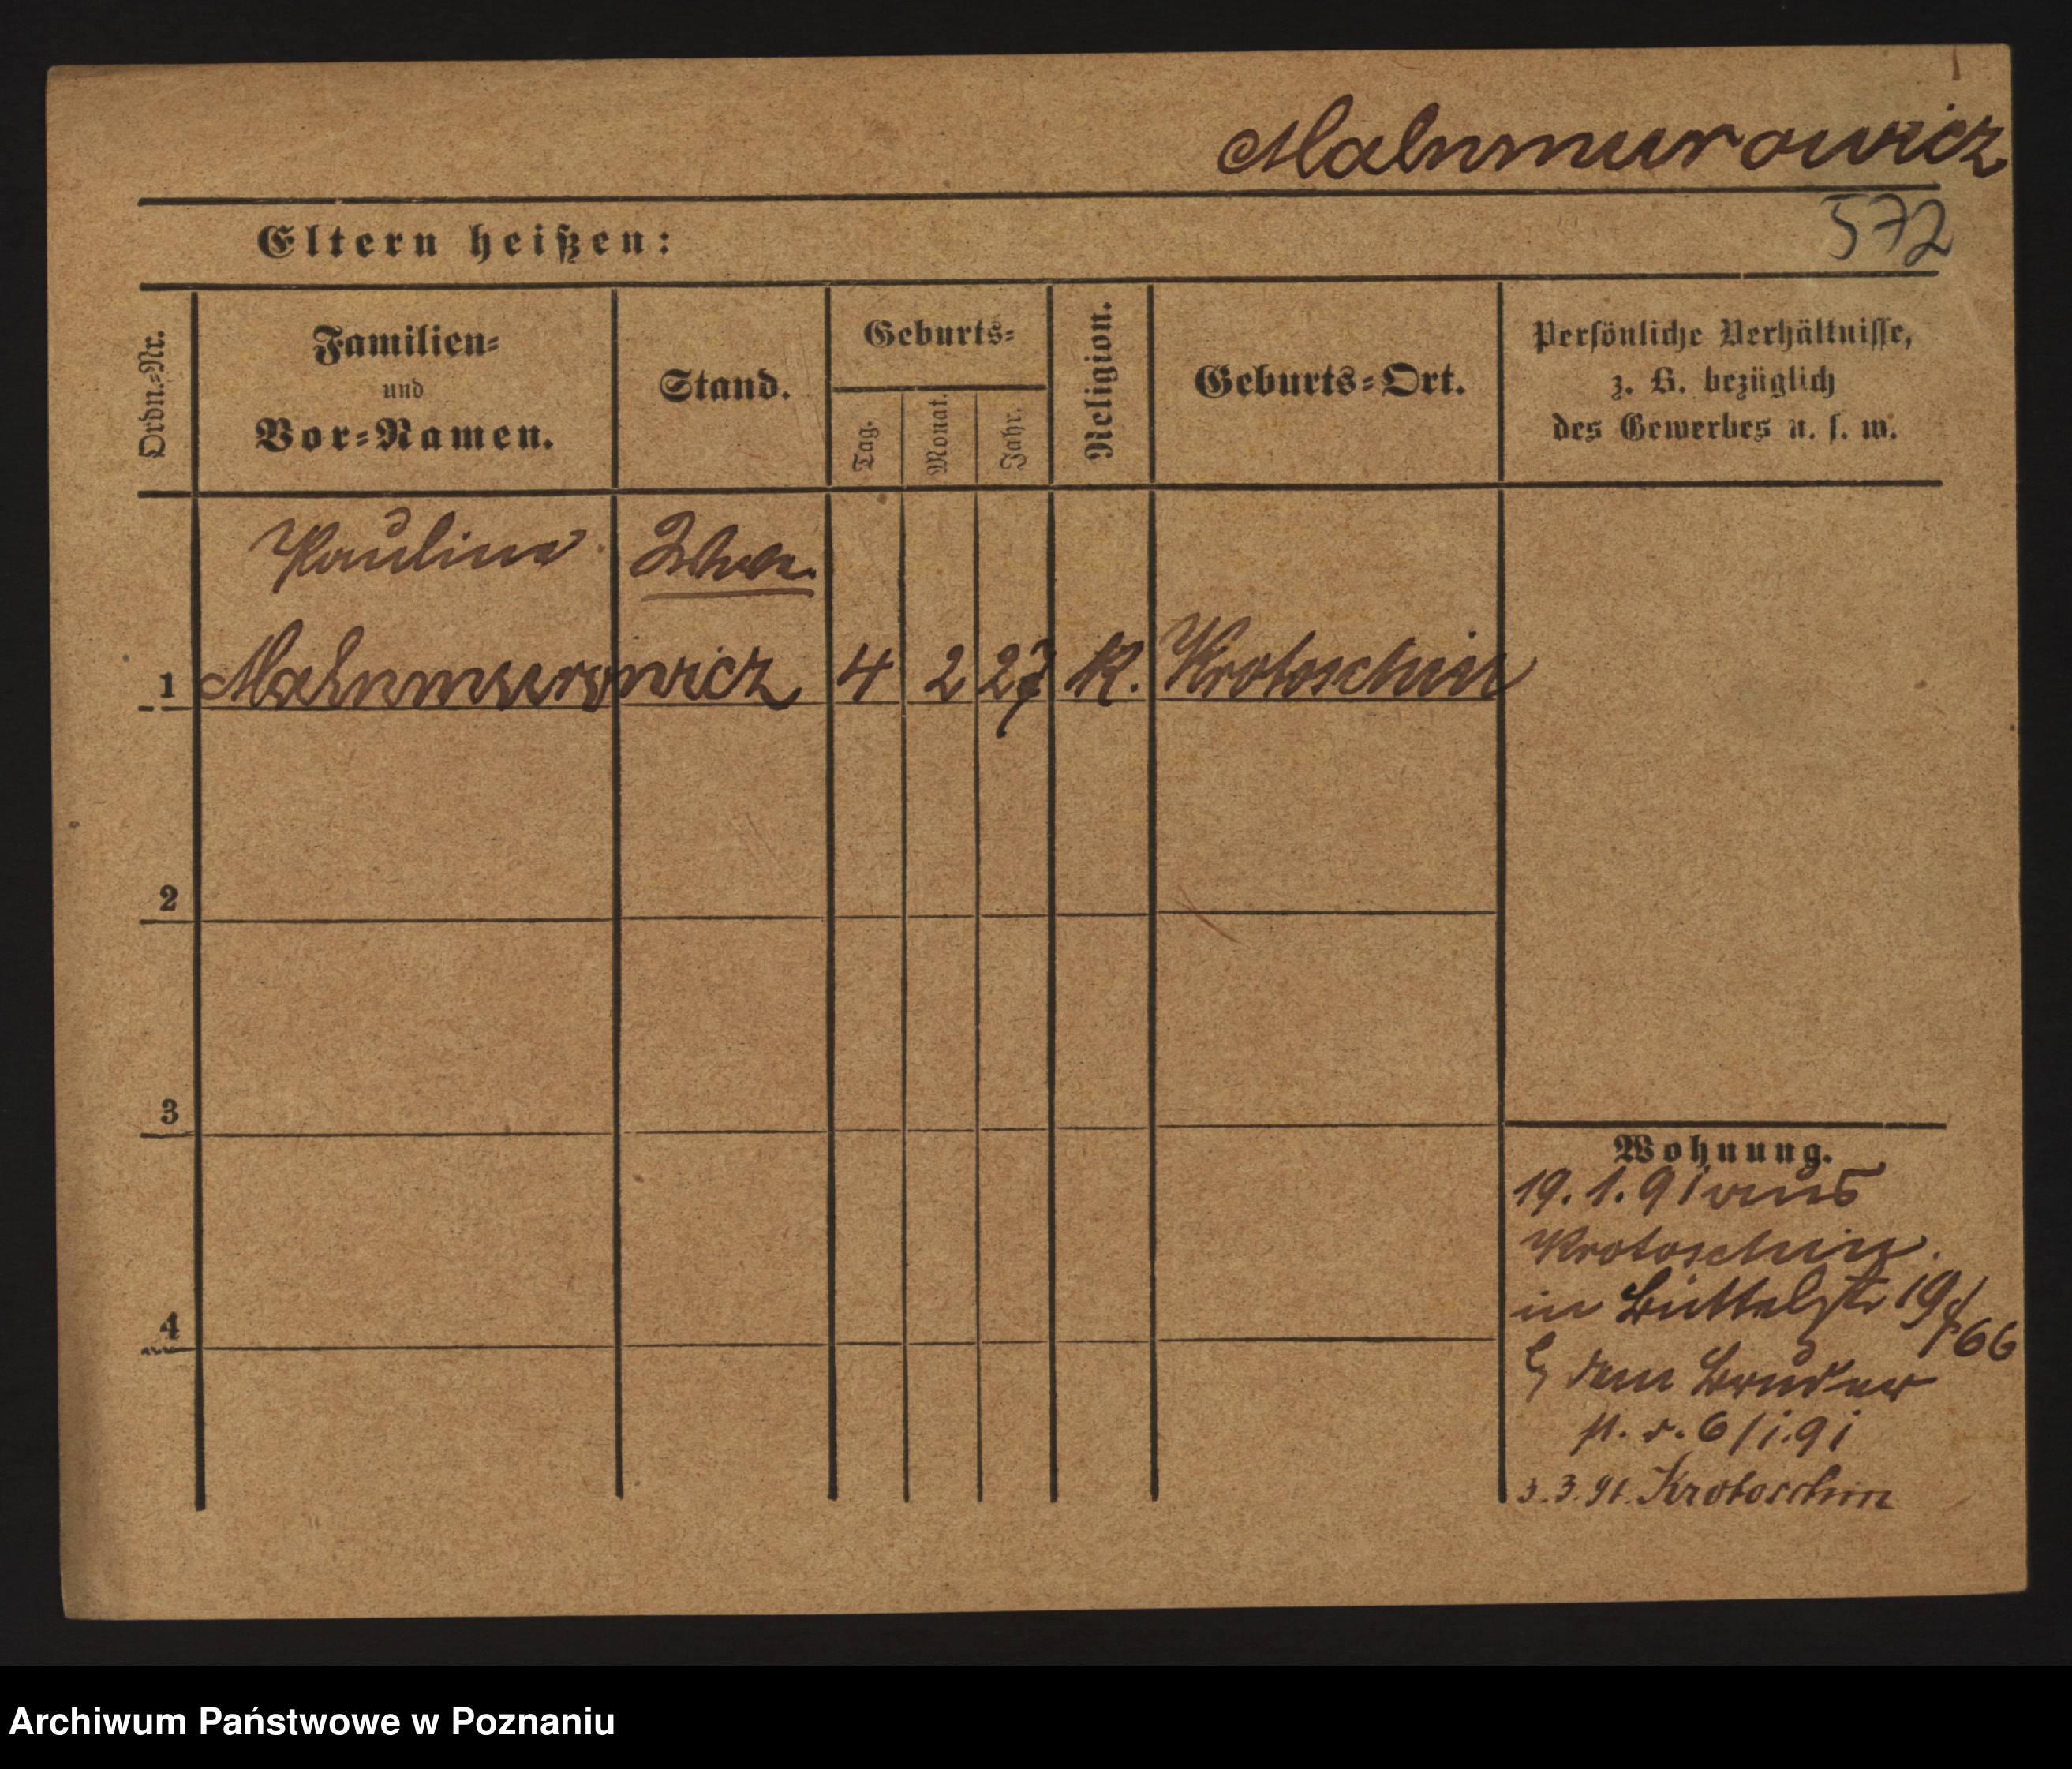 Malnmurowicz
572
Eltern heißen:
Ordn.=Nr.
Familien=
und
Vor=Namen.
Stand.
Geburts=
Tag.
Monat.
Jahr.
Religion.
Geburts=Ort.
Persönliche Verhältnisse,
z. B. bezüglich
des Gewerbes u. s. w.
Pauline
1 Malnmurowicz 4 2 27 K. Krotoschin
2
3
4
Wohnung.
19.1.91 aus
Krotoschin.
in Büttelstr 19
/66
dem Bruder
6/1.91
3.3.91. Krotoschin
Archiwum Państwowe w Poznaniu